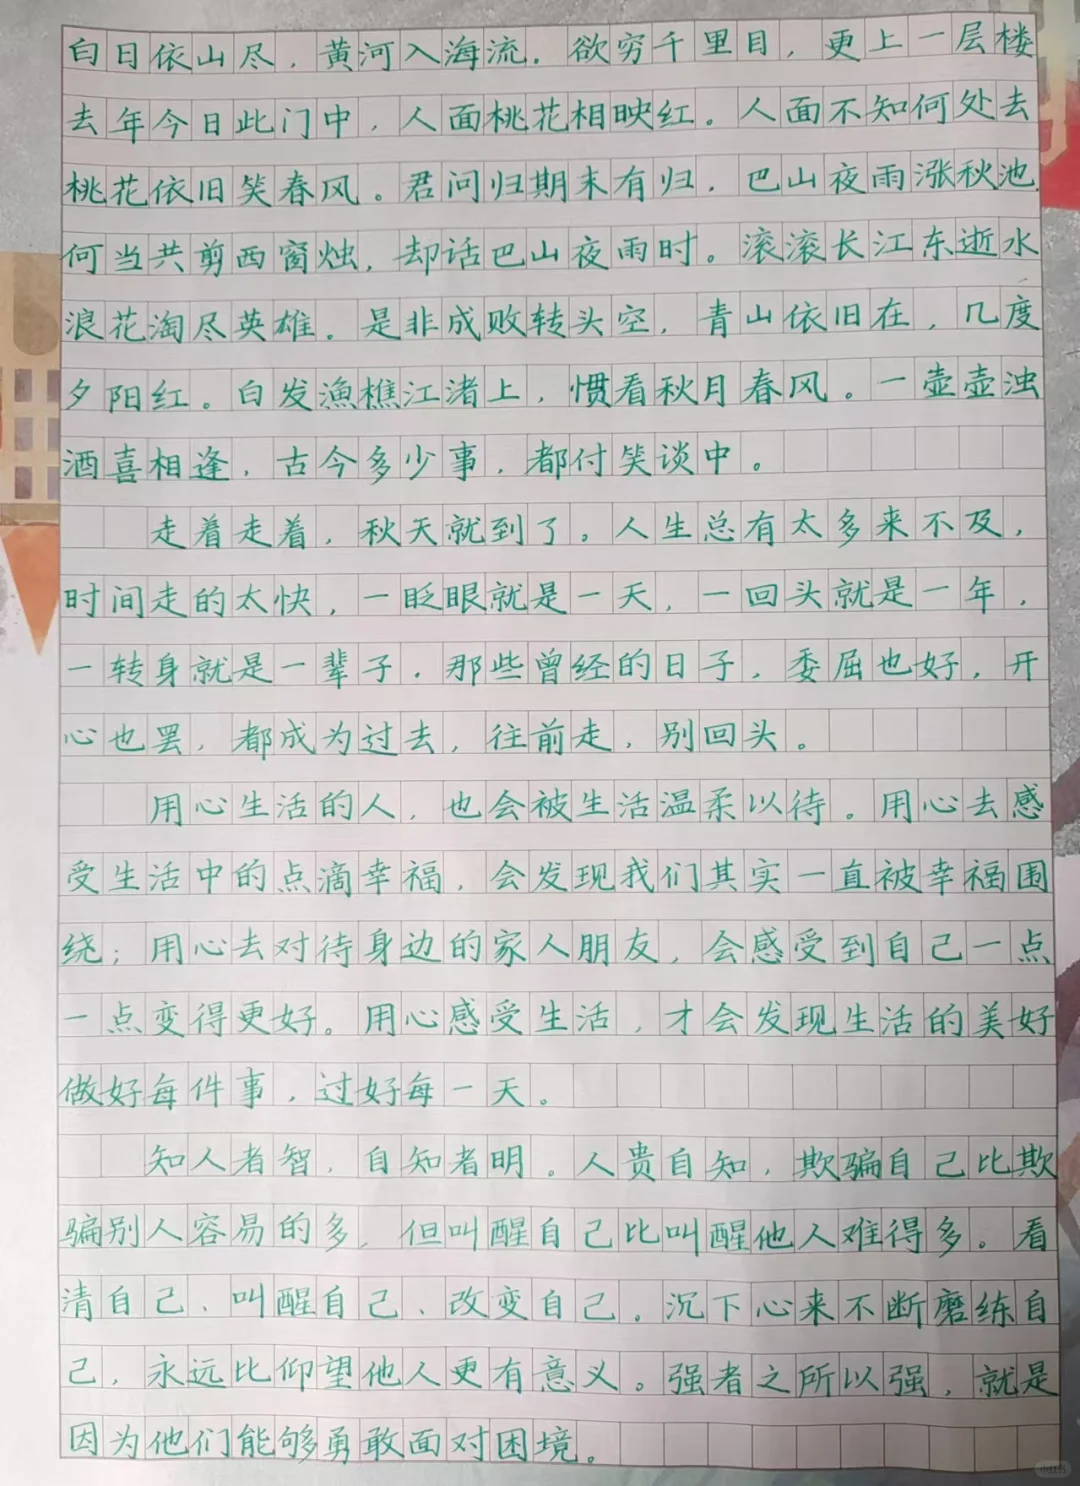 白日依山尽，黄河入海流。欲穷千里目，更上一层楼
去年今日此门中，人面桃花相映红。人面不知何处去
桃花依旧笑春风。君问归期未有归，巴山夜雨涨秋池
何当共剪西窗烛，却话巴山夜雨时。滚滚长江东逝水
浪花淘尽英雄。是非成败转头空，青山依旧在，几度
夕阳红。白发渔樵江渚上，惯看秋月春风。一壶壶浊
酒喜相逢，古今多少事，都付笑谈中。
走着走着，秋天就到了。人生总有太多来不及，
时间走的太快，一眨眼就是一天，一回头就是一年，
一转身就是一辈子．那些曾经的日子，委屈也好，开
心也罢，都成为过去，往前走，别回头。
用心生活的人，也会被生活温柔以待。用心去感
受生活中的点滴幸福，会发现我们其实一直被幸福围
绕；用心去对待身边的家人朋友，会感受到自己一点
一点变得更好。用心感受生活，才会发现生活的美好
做好每件事，过好每一天。
知人者智，自知者明。人贵自知，欺骗自己比欺
骗别人容易的多，但叫醒自己比叫醒他人难得多。看
清自己、叫醒自己、改变自己。沉下心来不断磨练自
己，永远比仰望他人更有意义。强者之所以强，就是
因为他们能够勇敢面对困境。
小红书